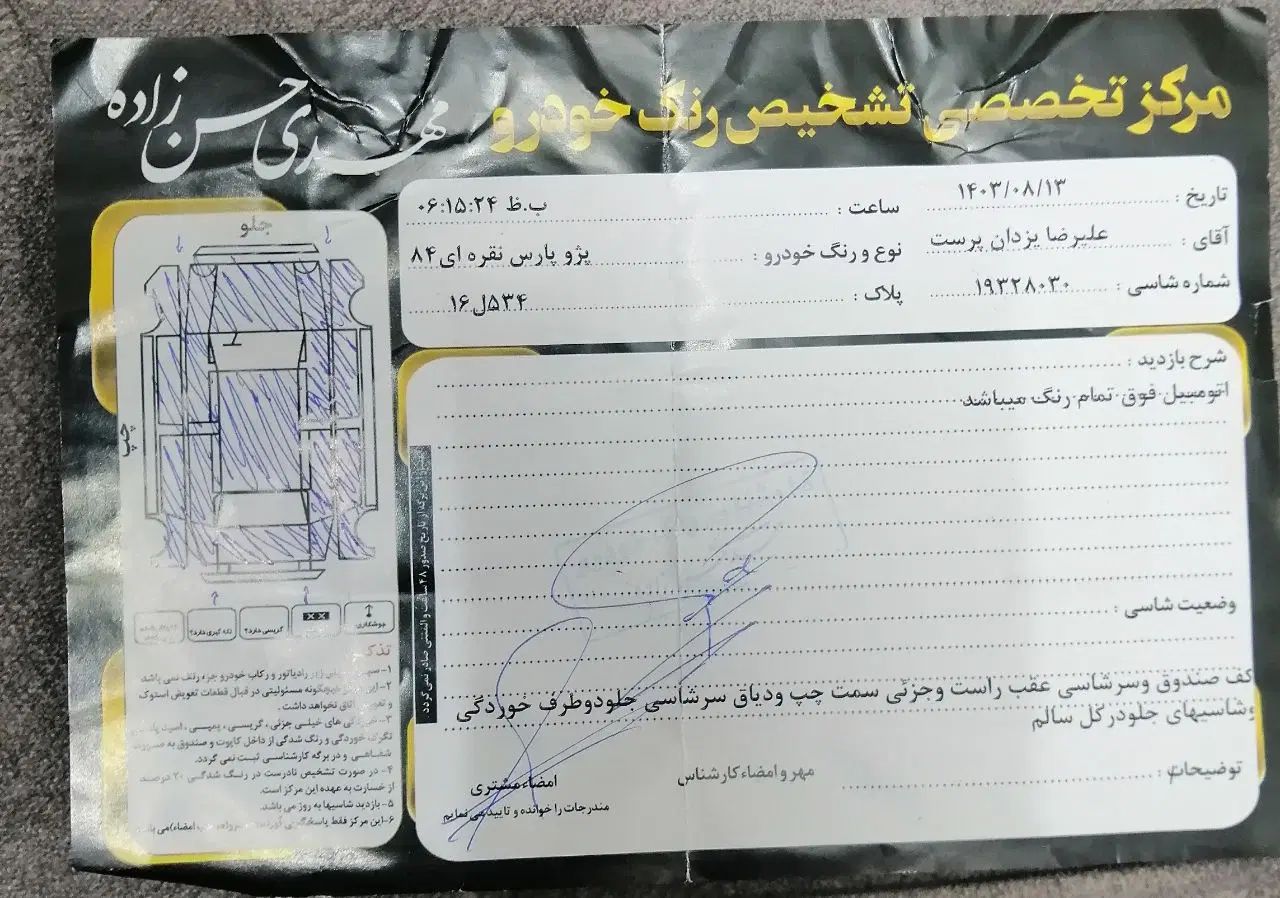 مرکز تخصصی تشخیص رنگ خودرو
مهدی حسن زاده
تاریخ : ۱۴۰۳/۰۸/۱۳
ساعت : ۰۶:۱۵:۲۴ ب.ظ
آقای : علیرضا یزدان پرست
نوع و رنگ خودرو : پژو پارس نقره ای ۸۴
شماره شاسی : ۱۹۳۲۸۰۳۰
پلاک : ۵۳۴ل۱۶
شرح بازدید :
اتومبیل فوق تمام رنگ میباشد
وضعیت شاسی :
کف صندوق وسرشاسی عقب راست وجزئی سمت چپ ودیاق سرشاسی جلودوطرف خوردگی
وشاسیهای جلودرکل سالم
توضیحات :
مهر و امضاء کارشناس
امضاء مشتری
مندرجات را خوانده و تایید می نمایم
جلو
چپ
جوشکاری
XX
گریسی دارد؟
لکه گیری دارد؟
تذکر
رادیاتور و رکاب خودرو جزء رنگ نمی باشد
هیچگونه مسئولیتی در قبال قطعات تعویض استوک
اتاق نخواهد داشت.
۳- های خیلی جزئی، گریسی، پمپی، اسید
تگرگ خوردگی و رنگ شدگی از داخل کاپوت و صندوق به صورت
شفاهی و در برگه کارشناسی ثبت نمی گردد.
۴- در صورت تشخیص نادرست در رنگ شدگی ۲۰ درصد
از خسارت به عهده این مرکز است.
۵- بازدید شاسیها به روز می باشد.
۶- این مرکز فقط پاسخگوی
برگه از تاریخ صدور ۴۸ ساعت و المثنی صادر نمی گردد